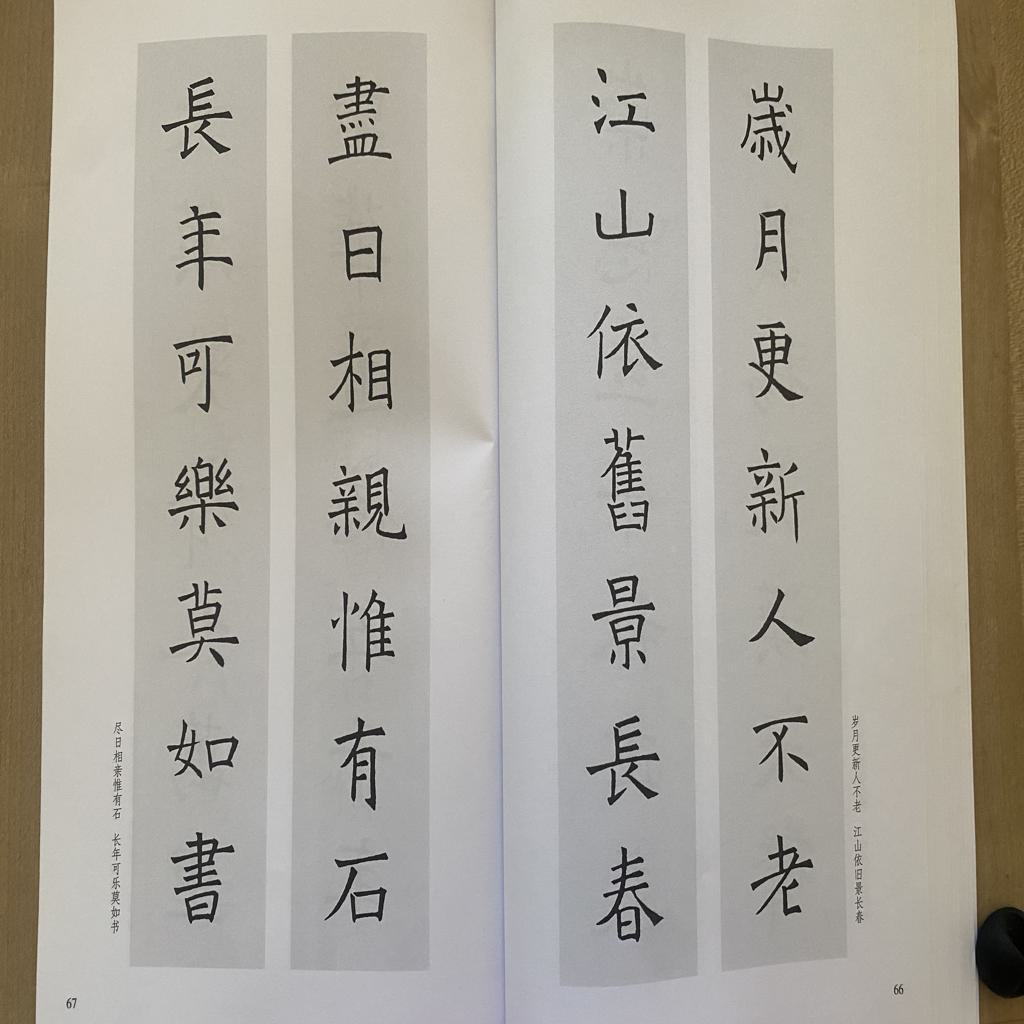 歲月更新人不老
江山依舊景長春
岁月更新人不老 江山依旧景长春
66
盡日相親惟有石
長年可樂莫如書
尽日相亲惟有石 长年可乐莫如书
67